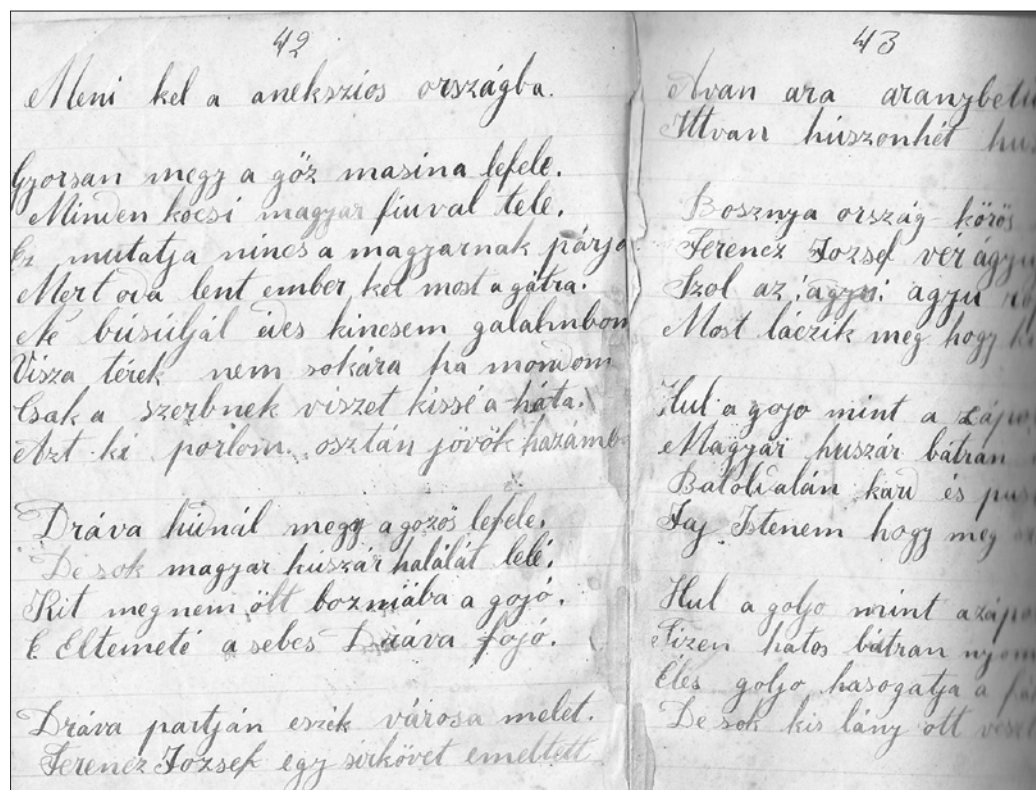 42
Meni kel a anekszios országba.
Gyorsan megy a göz masina lefele.
Minden kocsi magyar fiuval tele.
Ez mutatja nincs a magyarnak párja
Mert oda lent ember kel most a gátra.
Ne búsúljál édes kincsem galambom
Visza térek nem sokára ha mondom
Csak a szerbnek viszet kissé a háta.
Azt ki porlom. osztán jövök hazámb
Dráva hidnál megy a gozös lefele.
De sok magyar huszár halálát lelé.
Kit meg nem ölt bozniába a gojó.
E Eltemeté a sebes Dráva fojó.
Dráva partján eszék városa melet.
Ferencz Jozsef egy sirkövet emeltett
43
Avan ara aranybetü
Ittvan húszonhét hus
Bosznya ország körös
Ferencz Jozsef ver ágyu
Szol az ágyu
Most láczik meg hogy ki
Hul a gojo mint a zápo
Magyar huszár bátran
Baloldalán kard és pus
Jaj Istenem hogy meg
Hul a goljo mint a zápo
Tizen hatos bátran nyom
Éles goljo hasogatja a fa
De sok kis lány ott veszt